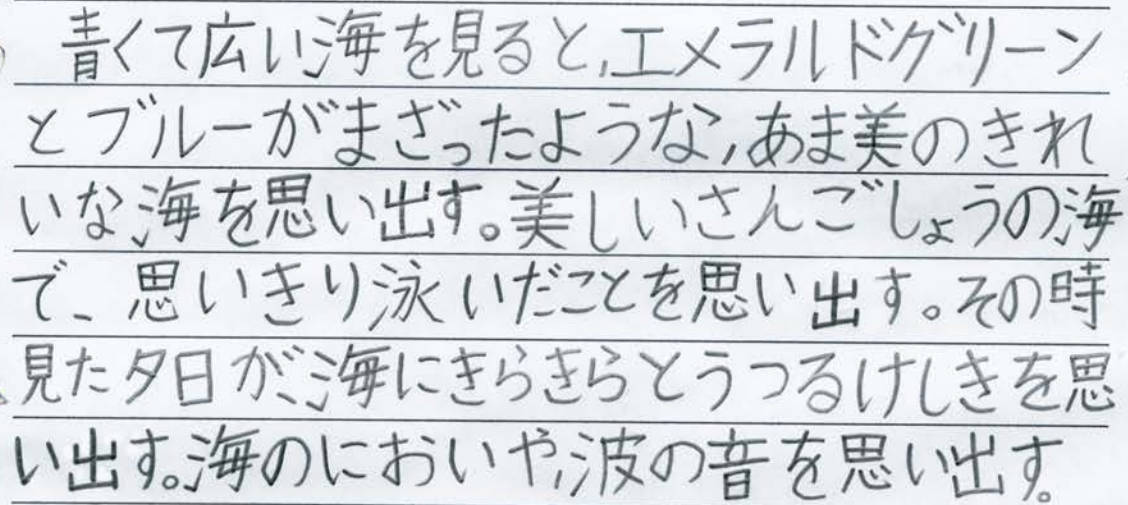 青くて広い海を見ると、エメラルドグリーン
とブルーがまざったような、あま美のきれ
いな海を思い出す。美しいさんごしょうの海
で、思いきり泳いだことを思い出す。その時
見た夕日が、海にきらきらとうつるけしきを思
い出す。海のにおいや、波の音を思い出す。